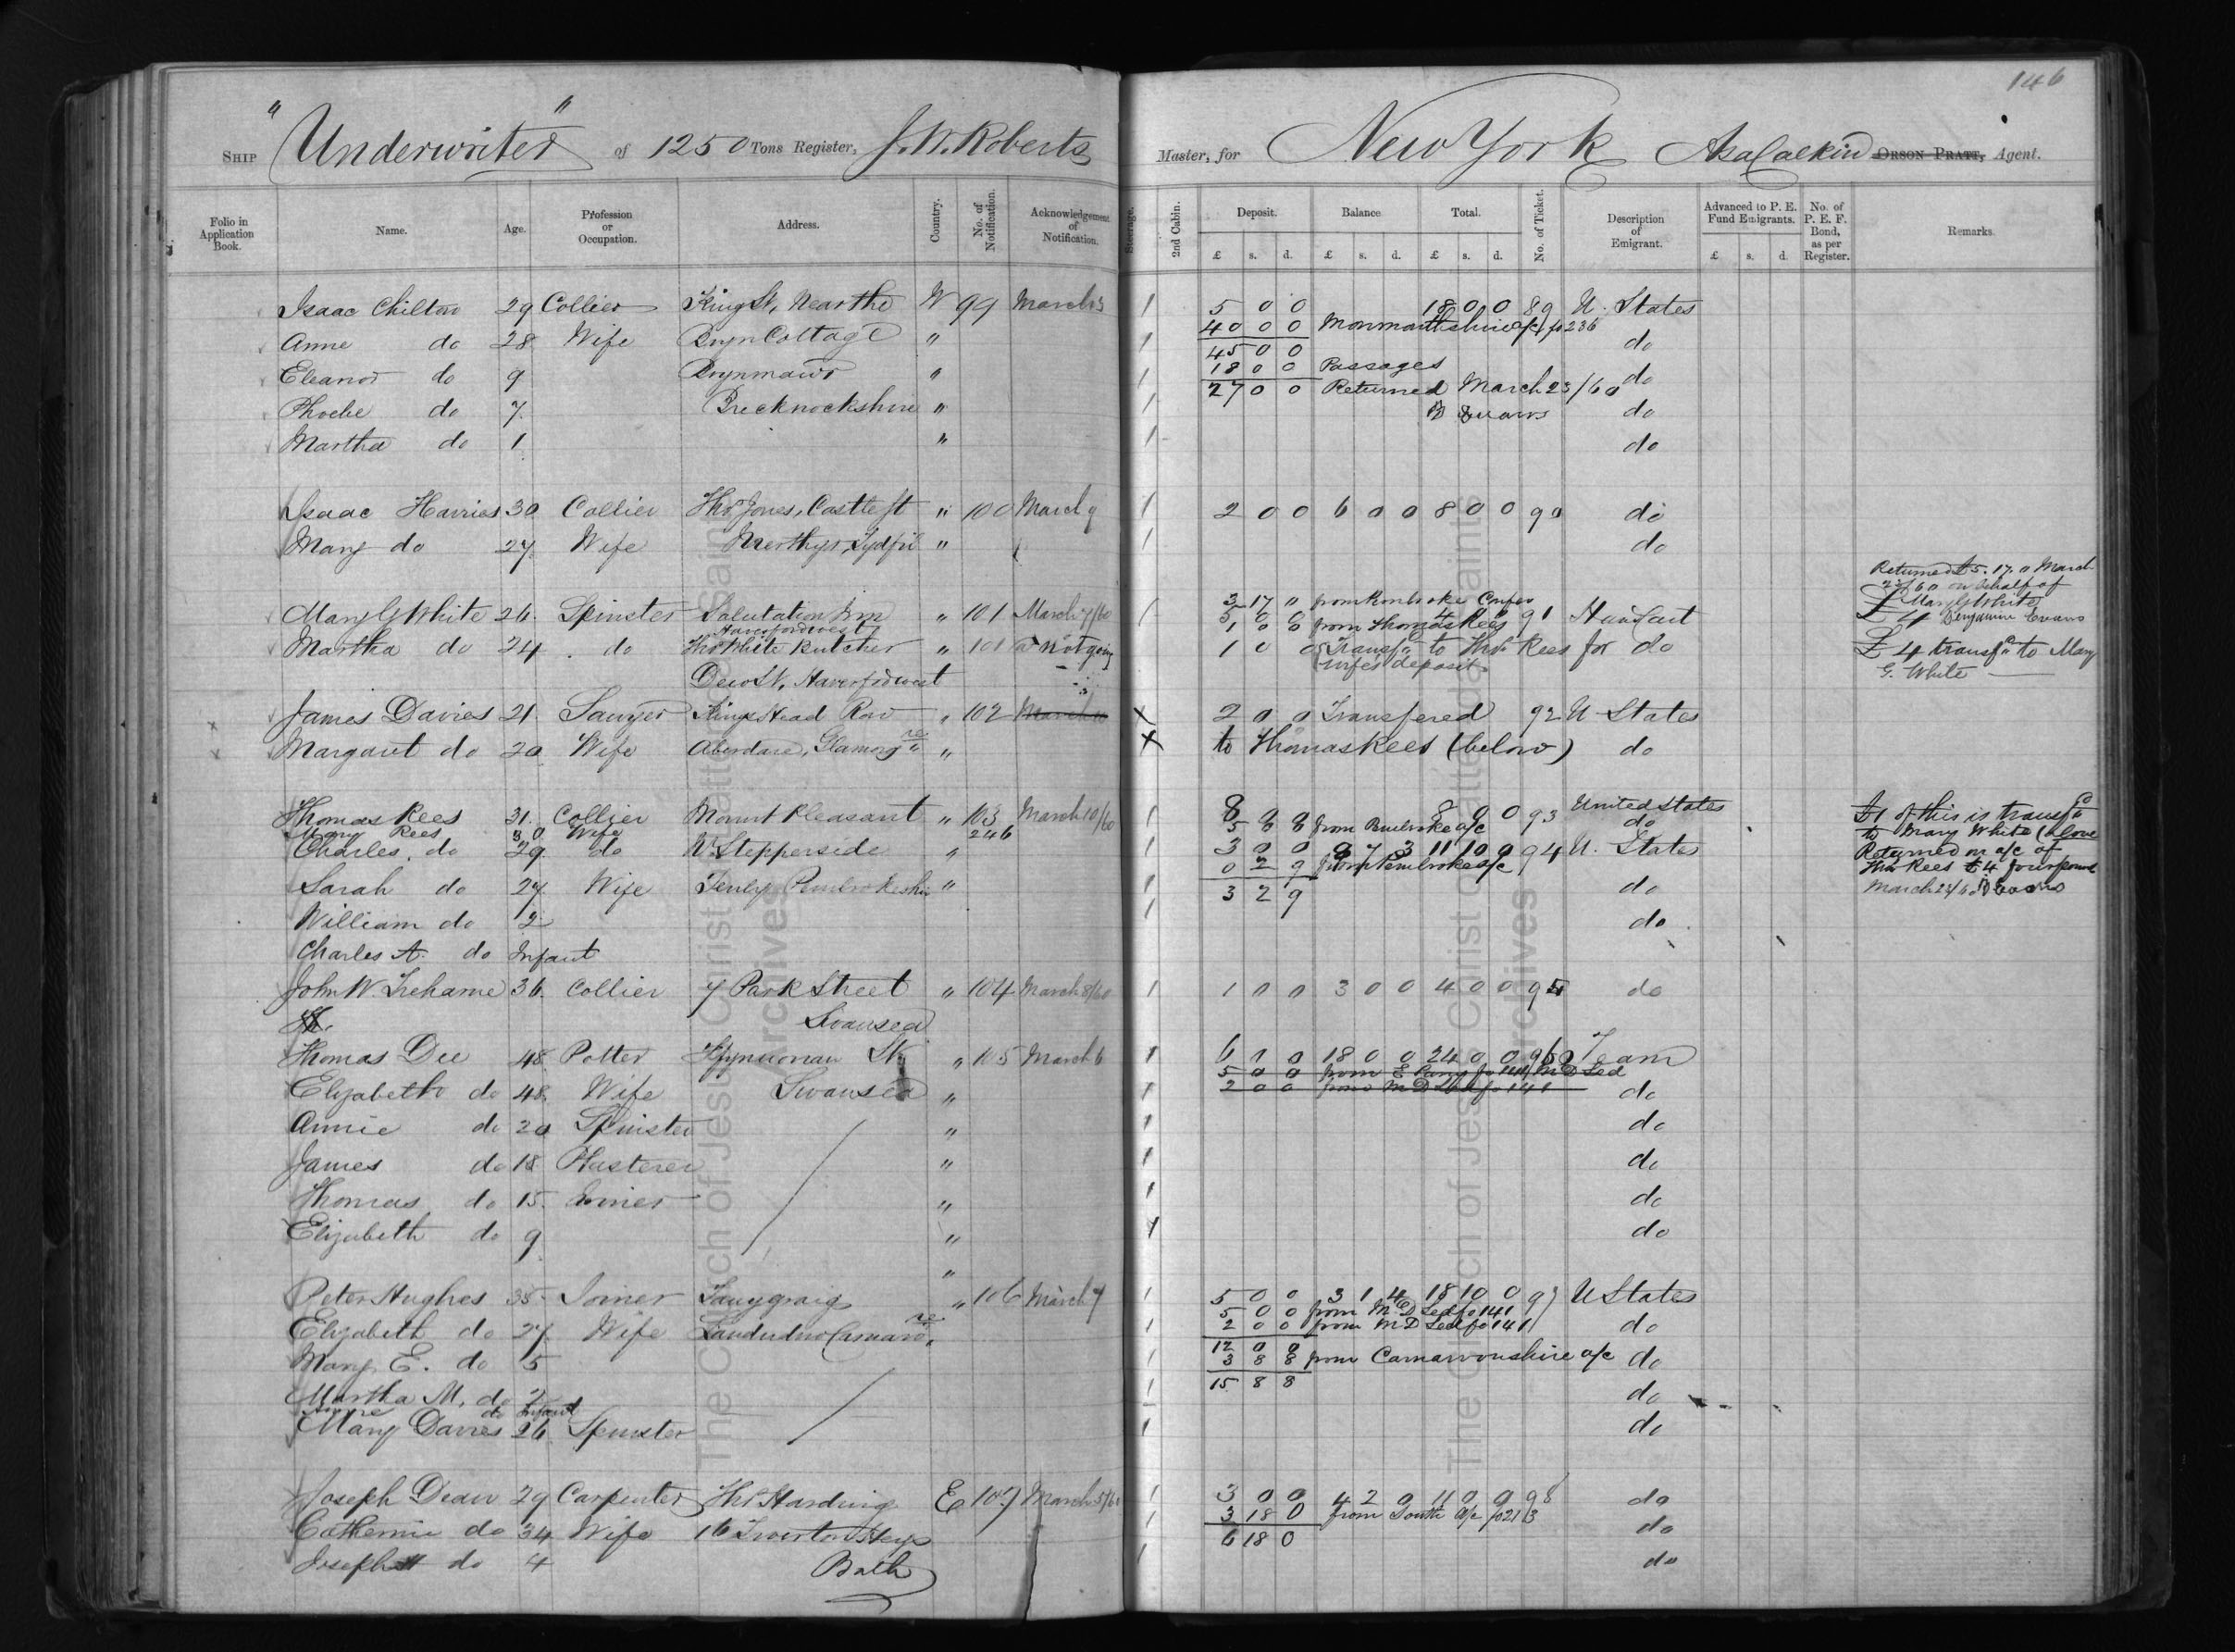 146
SHIP "Underwriter" of 1250 Tons Register, J. W. Roberts Master, for New York Asa Calkin ORSON PRATT, Agent.
Folio in Application Book. Name. Age. Profession or Occupation. Address. Country. No. of Notification. Acknowledgement of Notification. Steerage. 2nd Cabin. Deposit. Balance Total. No. of Ticket. Description of Emigrant. Advanced to P. E. Fund Emigrants. No. of P. E. F. Bond, as per Register. Remarks.
£ s. d. £ s. d. £ s. d. £ s. d.
Isaac Chilton 29 Collier King St, Near the W 99 March 1 5 0 0 18 0 0 89 U. States
40 0 0 Monmouthshire a/c fo 236
Anne do 28 Wife Bryn Cottage " 1 do
45 0 0
18 0 0 Passages
Eleanor do 9 Brynmawr " 1 do
27 0 0 Returned March 23/60
Phoebe do 7 Brecknockshire " 1 B Evans do
Martha do 1 " 1 do
Isaac Harries 30 Collier Thos Jones, Castle St " 100 March 9 1 2 0 0 6 0 0 8 0 0 90 do
Mary do 27 Wife Merthyr, Tydfil " 1 do
Returned £5. 17. " March
23/60 on behalf of
Mary G White
Benjamin Evans
Mary G White 26 Spinster Salutation Inn " 101 March 7/60 1 3 17 " from Pembroke Confer
Haverfordwest
1 0 0 from Thomas Rees 91 Handcart £4
Martha do 24 do Thos White Butcher " 101 Not going 1 0 0 Transfd to Thos Rees for do £4 transfd to Mary
wifes deposit G. White
Dew St, Haverfordwest
James Davies 21 Sawyer Kings Head Row " 102 March 10 x 2 0 0 Transfered 92 U States
Margaret do 20 Wife Aberdare, Glamorgre " x to Thomas Rees (below) do
Thomas Rees 31 Collier Mount Pleasant " 103 March 10/60 1 8 0 0 8 0 0 93 United States £1 of this is transfd
Mary Rees 30 Wife 246 from Pembroke a/c do to Mary White (above
Charles do 29 do N. Stepperside " 3 0 0 8 7 3 11 10 0 94 U. States Returned on a/c of
0 2 9 from Pembroke a/c Thos Rees £4 four pound
Sarah do 27 Wife Tenby Pembrokeshire " 1 3 2 9 do March 23/60 B Evans
William do 2 1 do
Charles A. do Infant
John W. Treharne 36 Collier 7 Park Street " 104 March 8/60 1 1 0 0 3 0 0 4 0 0 95 do
Swansea
Thomas Dee 48 Potter Ffynnonau St " 105 March 6 1 6 0 0 18 0 0 24 0 0 96 Team
5 0 0 from E Parry fo 141 M D Led
Elizabeth do 48 Wife Swansea " 1 2 0 0 from M D Led fo 141 do
Annie do 20 Spinster " 1 do
James do 18 Plasterer " 1 do
Thomas do 15 Joiner " 1 do
Elizabeth do 9 " 1 do
"
Peter Hughes 35 Joiner Tanygraig " 106 March 7 1 5 0 0 3 1 4 18 10 0 97 U States
5 0 0 from M D Led fo 141
Elizabeth do 27 Wife Landudno Carnarvre 1 2 0 0 from M D Led fo 141 do
12 0 0
Mary E. do 5 1 3 8 8 from Carnarvonshire a/c do
15 8 8
Martha M. do 2 1 do
Anne do Infant
Mary Davies 26 Spinster 1 do
Joseph Dean 29 Carpenter Thos Harding E 107 March 5/60 1 3 0 0 4 2 0 11 0 0 98 do
3 18 0 from South a/c fo 213
Catherine do 34 Wife 16 1 do
6 18 0
Joseph do 4 Bath 1 do
The Church of Jesus Christ of Latter-day Saints
Archives
The Church of Jesus Christ of Latter-day Saints
Archives